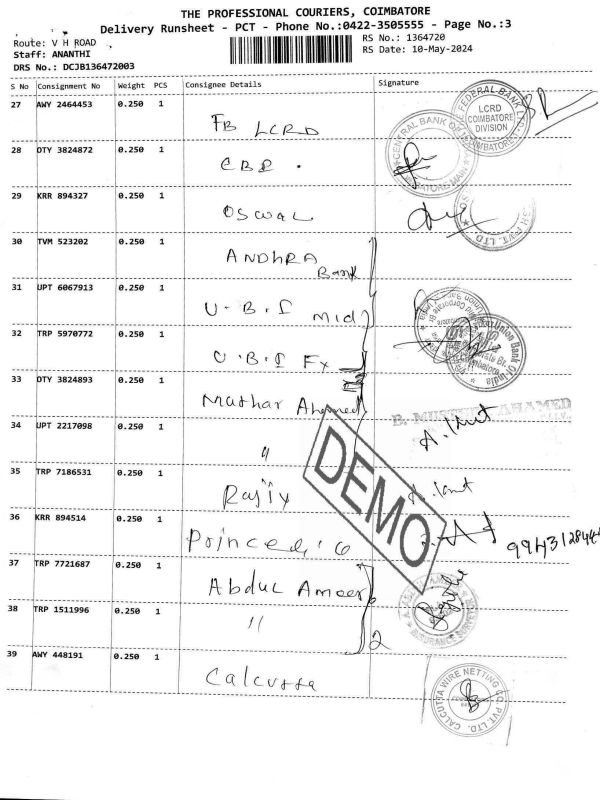 THE PROFESSIONAL COURIERS, COIMBATORE
Delivery Runsheet - PCT - Phone No.:0422-3505555 - Page No.:3
Route: V H ROAD
RS No.: 1364720
Staff: ANANTHI
RS Date: 10-May-2024
DRS No.: DCJB136472003
S No Consignment No Weight PCS Consignee Details Signature
27 AWY 2464453 0.250 1 FB LCRD
FEDERAL BANK LTD
LCRD
COIMBATORE
DIVISION
28 OTY 3824872 0.250 1 CBI .
CENTRAL BANK OF
29 KRR 894327 0.250 1 OSWAL
PVT. LTD.
30 TVM 523202 0.250 1 ANDHRA
Bank
31 UPT 6067913 0.250 1 U.B.I Mid
32 TRP 5970772 0.250 1 U.B.I Fx
Union Bank Of India
33 OTY 3824893 0.250 1 Muthar Ahamed
AHAMED
34 UPT 2217098 0.250 1 "
35 TRP 7186531 0.250 1 Rajix
DEMO
36 KRR 894514 0.250 1
37 TRP 7721687 0.250 1 Abdul Ameer
38 TRP 1511996 0.250 1 "
2
39 AWY 448191 0.250 1 Calcutta
CALCUTTA WIRE NETTING CO. PVT. LTD.